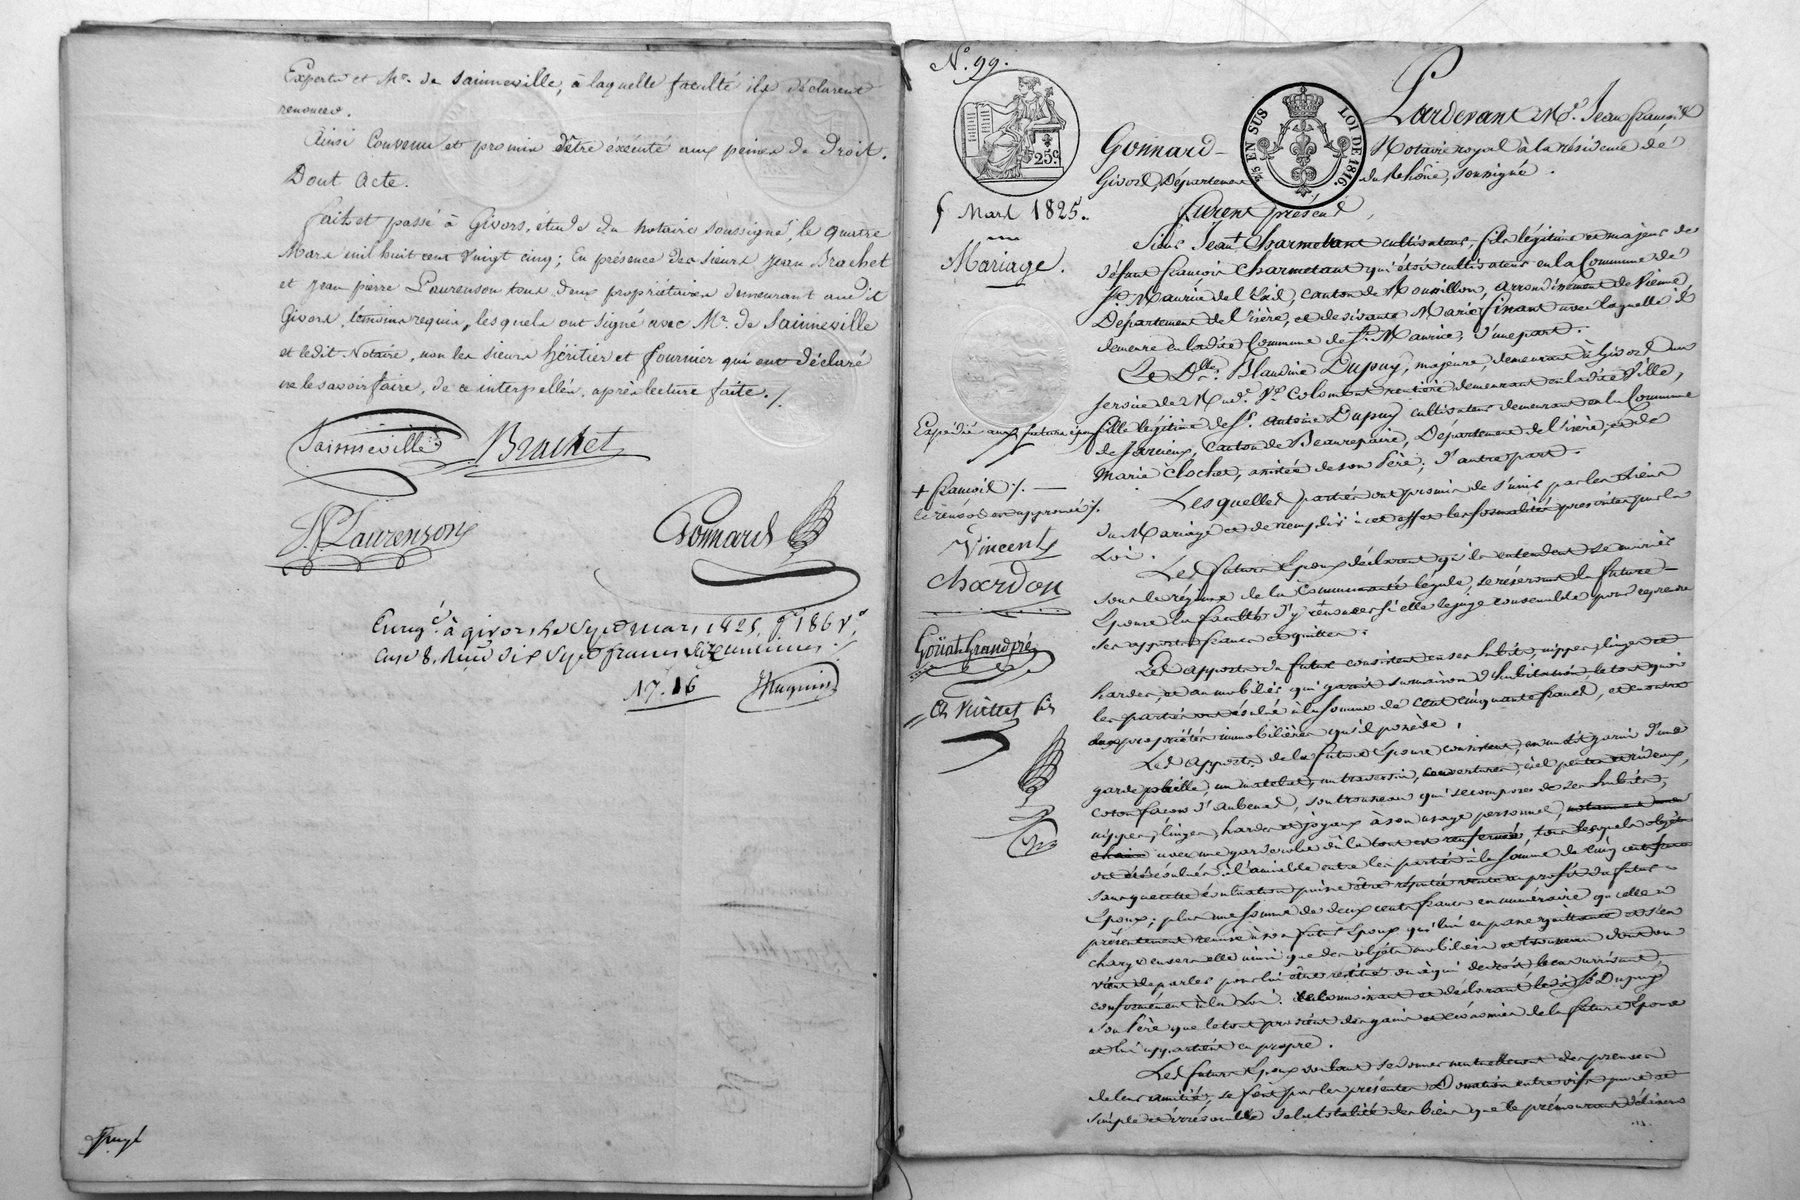 Experts et Mr. de Sainneville, à laquelle faculté ils déclarent
renoncer.
Ainsi convenu et promis être exécuté aux peines de Droit.
Dont Acte.
fait et passé à Givors, étude du notaire soussigné, le quatre
Mars mil huit cent vingt cinq; En présence des sieurs Jean Brachet
et Jean pierre Laurenson tous deux propriétaires demeurant audit
Givors, témoins requis, lesquels ont signé avec Mr. de Sainneville
et ledit Notaire, non les sieurs héritier et fournier qui ont déclaré
ne le savoir faire, de ce interpellés, après lecture faite./.
Sainneville Brachet
JP Laurenson Gonnard
Enregé. à givors le Sept mars 1825, fo 186 Vo
Case 8. Reçu dix Sept francs Seize centimes
17.16
No. 99.
25 EN SUS LOI DE 1816.
25c
Pardevant Me. Jean françois
Gonnard Notaire royal à la résidence de
Givors, Département du Rhône, soussigné.
5 Mars 1825.
Mariage.
furent présens,
Sieur Jean + Charmetant cultivateur, fils légitime et majeur de
défunt françois Charmetant qui étoit cultivateur en la Commune de
St. Maurice de l'Exil, canton de Roussillon, arrondissement de Vienne,
Département de l'isère, et de vivante Marie finant avec laquelle il
demeure en ladite Commune de St. Maurice, d'une part.
Et Dlle. Blandine Dupuy, majeure, demeurant à Givors au
service de Made. Ve. Colomban rentière demeurant en ladite Ville,
fille légitime de Sr. Antoine Dupuy cultivateur demeurant en la Commune
de Jarcieux, Canton de Beaurepaire, Département de l'isère, et de
Marie Clochet, assistée de son Père, d'autre part.
Expédié aux futurs époux
+ françois ./.
le renvoi en approuvé ./.
Vincent
Chardon
Goüat Grandpré
Lesquelles parties ont promis de s'unir par les liens
du Mariage et de remplir à cet effet les formalités prescrites par la
Loi.
Les futurs Epoux déclarent qu'ils entendent se marier
sous le régime de la Communauté légale, se réservant la future
Epouse la faculté d'y renoncer si elle le juge convenable pour reprendre
ses apports francs et quittes.
Les apports du futur consistent en ses habits, nippes, linges et
hardes, et au mobilier qui garnit sa maison d'habitation, le tout que
les parties ont évalué à la somme de cent cinquante francs, et en outre
aux propriétés immobilières qu'il possède.
Les apports de la future Epouse consistent, en un lit garni d'une
garde paille, un matelas, un traversin, couvertures, ciel pentes et rideaux,
coton façon d'aubenas, son trousseau qui se compose de ses habits,
nippes, linges, hardes et joyaux à son usage personnel,
avec une garderobe où le tout est renfermé, tous lesquels objets
ont été évalués à l'amiable entre les parties à la somme de cinq cent francs
sans que cette évaluation puisse être réputée vente au profit du futur
Epoux; plus une somme de deux cents francs en numéraire qu'elle a
présentement remise à son futur Epoux qui lui en passe quittance et s'en
charge envers elle ainsi que des objets mobiliers et trousseau dont on
vient de parler pour lui être restitué ou à qui de droit le cas arrivant,
conformément à la Loi. Reconnaissant et déclarant ledit Sr. Dupuy
son Père que le tout provient des gains et économies de la future Epouse
et lui appartient en propre.
Les futurs Epoux voulant se donner mutuellement des preuves
de leur amitié, se font par les présentes Donation entre vifs, pure et
simple et irrévocable de la totalité des biens que le prémourant délaissera